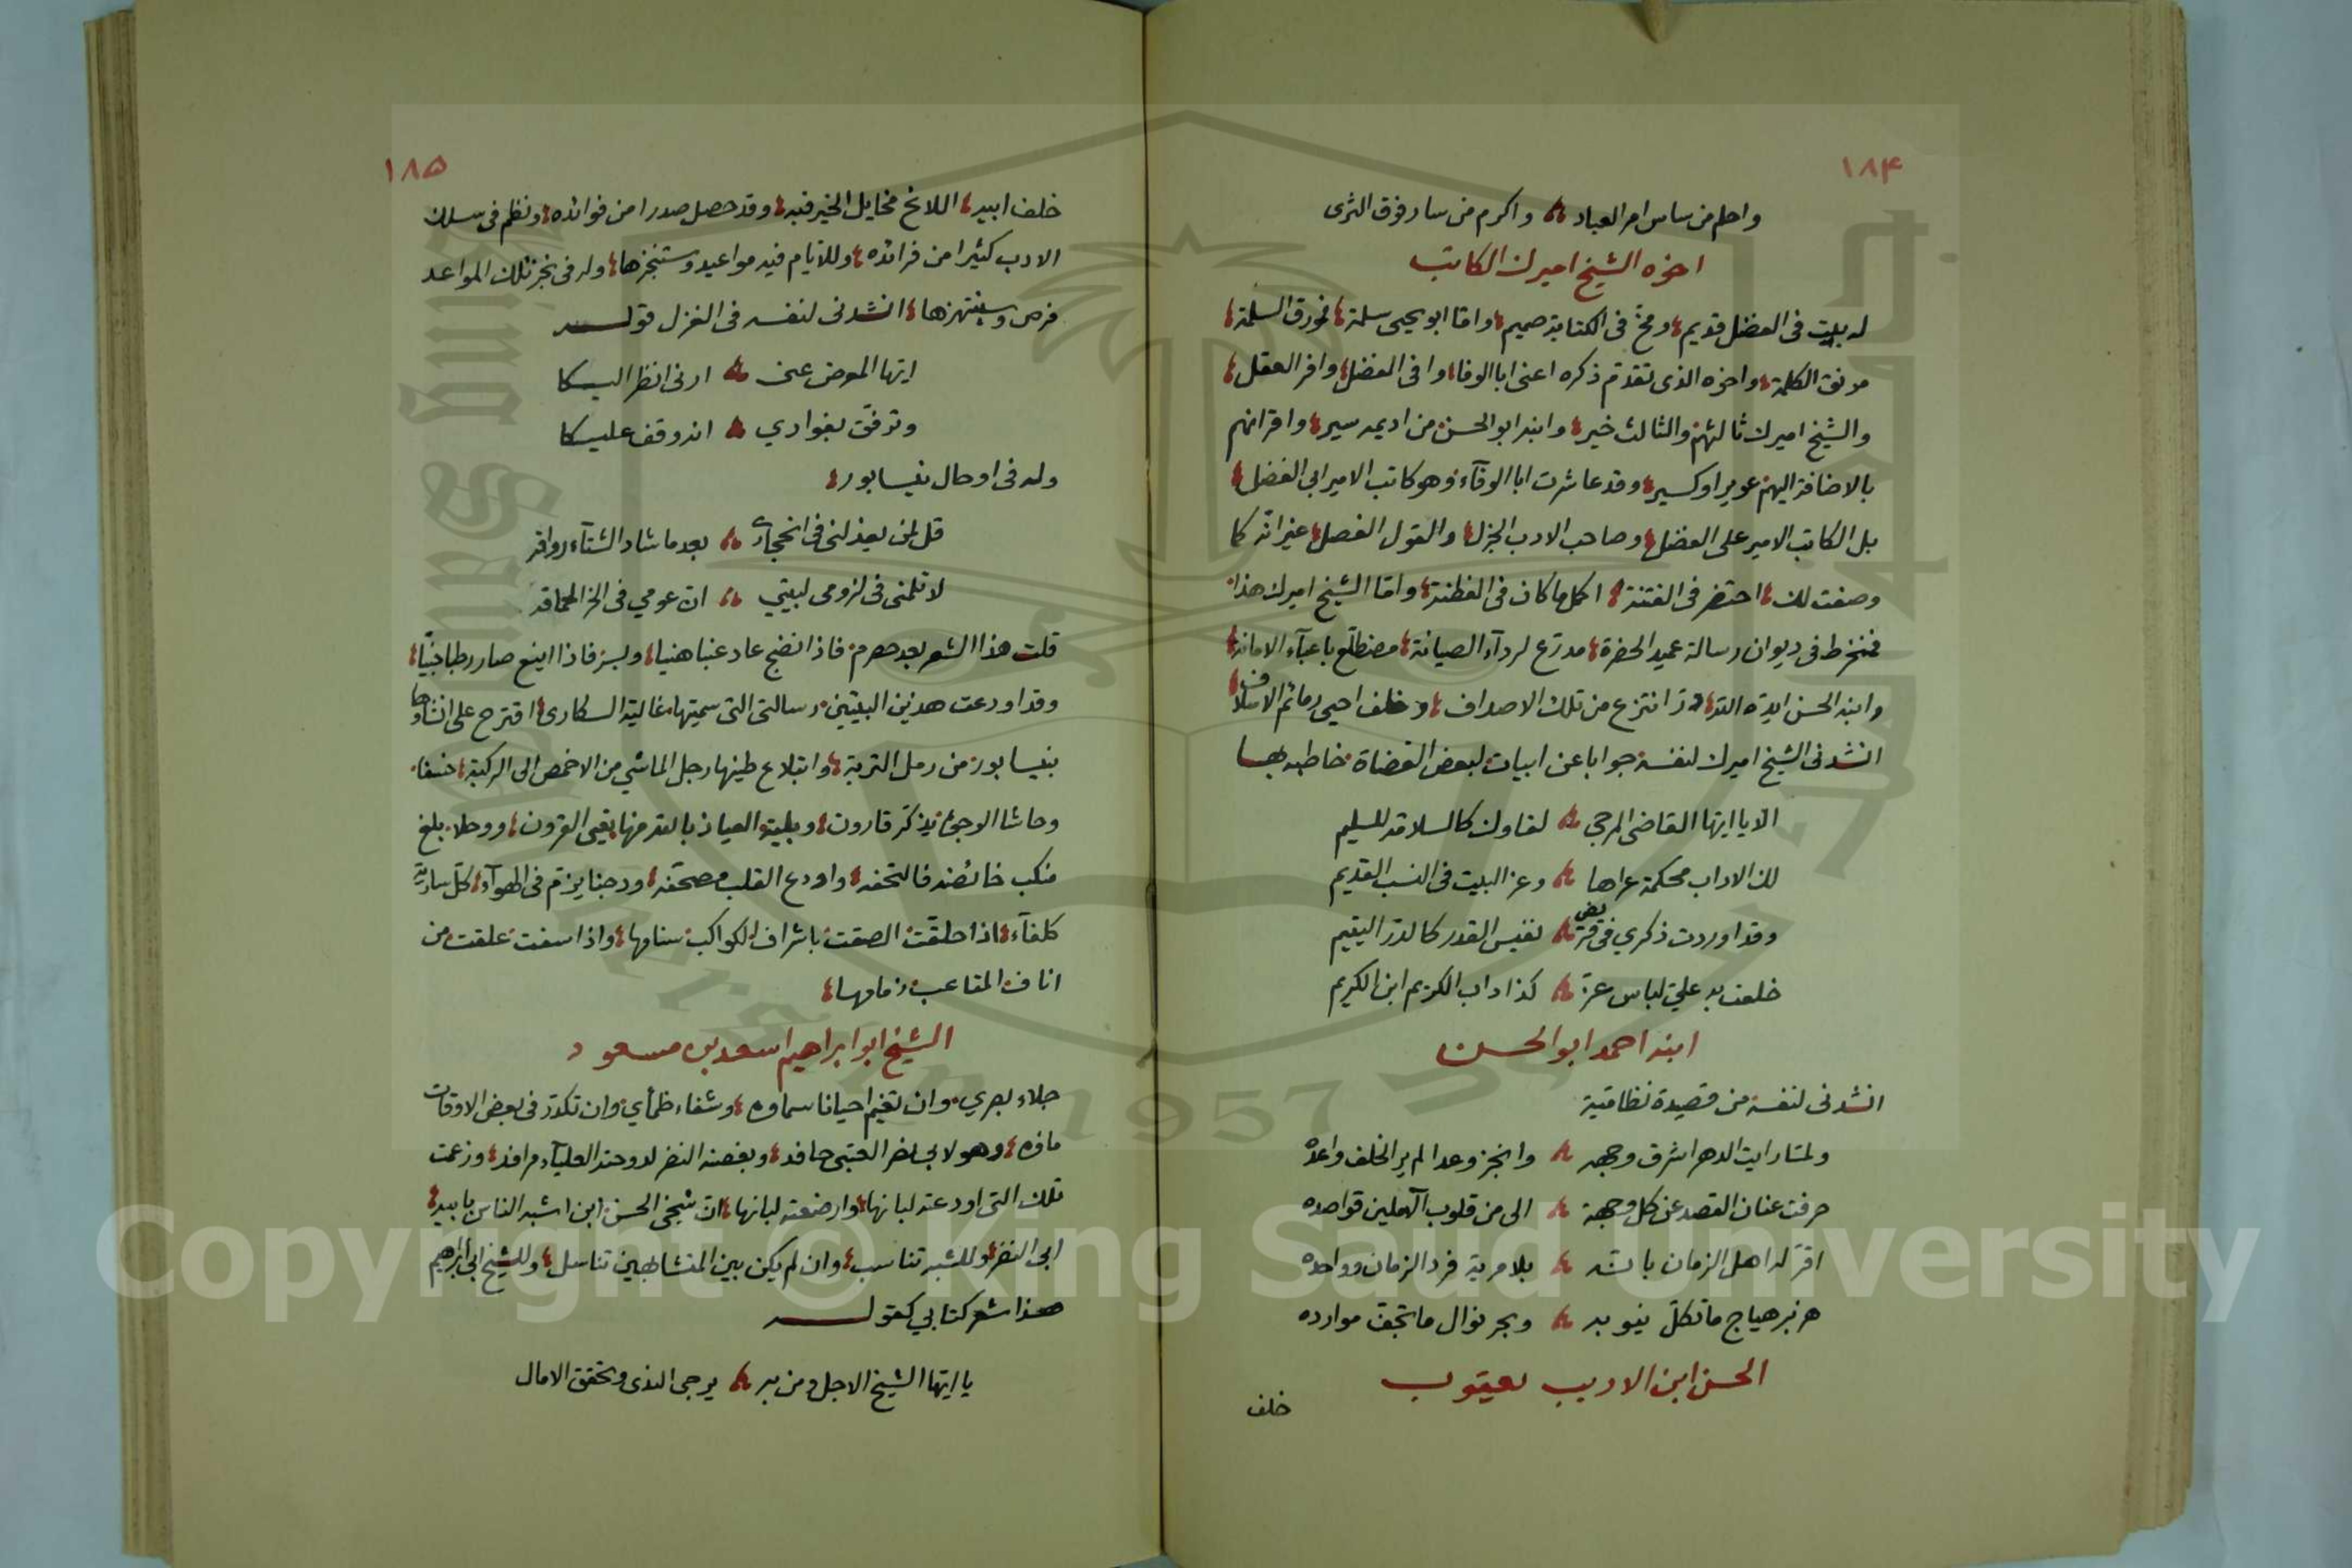 ١٨۴
واحلم من ساس امر العباد واكرم من سار فوق الثرى
اخوه الشيخ اميرك الكاتب
له بيت فى الفضل قديم ومخ فى الكتابة صميم واما ابو يحيى سلمة فمورق السلمة
مونق الكلمة واخوه الذى تقدم ذكره اعنى ابا الوفا وافى الفضل وافر العقل
والشيخ اميرك ثالثهم والثالث خير وابنه ابو الحسن من اديمه سير واقرانهم
بالاضافة اليهم عوير او كسير وقد عاشرت ابا الوفآء وهو كاتب الامير ابى الفضل
بل الكاتب الامير على الفضل وصاحب الادب الجزل والقول الفصل غير انّه كما
وصفت لك احتضر فى الفتنة اكمل ما كان فى الفطنة واما الشيخ اميرك هذا
فمنخرط فى ديوان رسالة عميد الحضرة مدرع لردآء الصيانة مضطلع باعبآء الامانة
وابنه الحسن ايده الله در انتزع من تلك الاصداف وخلف احيى رمائم الاسلاف
انشدنى الشيخ اميرك لنفسه جوابا عن ابيات لبعض القضاة خاطبه بها
الا يا ايها القاضى المرجى لقاوك كالسلامة للسليم
لك الاداب محكمة عراها وعز البيت فى النسب القديم
وقد اوردت ذكري فى قريض نفيس القدر كالدر اليتيم
خلعت به على لباس عز كذا داب الكريم ابن الكريم
ابنه احمد ابو الحسن
انشدنى لنفسه من قصيدة نظامية
ولمّا رايت الدهر اشرق وجهه وانجز وعدا لم ير الخلف واعده
صرفت عنان القصد عن كل وجهة الى من قلوب الآملين قواصده
اقرّ له اهل الزمان بانّه بلا مرية فرد الزمان وواحده
هزبر هياج ما تكلّ نيوبه وبحر نوال ما تجفّ موارده
الحسن ابن الاديب يعقوب
خلف
١٨۵
خلف ابيه اللائح مخايل الخير فيه وقد حصل صدرا من فوائده ونظم فى سلك
الادب كثيرا من فرائده وللايام فيه مواعيد وستنجزها وله فى نجز تلك المواعد
فرص وسينتهزها انشدنى لنفسه فى الغزل قوله
ايها المعرض عنى ارنى انظر اليكا
وترفّق بفوادي انه وقف عليكا
وله فى اوحال نيسابور
قل لمن يعذلنى فى انحجازى بعد ما شاد الشتآء رواقه
لا تلمنى فى لزومى لبيتي ان عومي فى الخرا لحماقه
قلت هذا الشعر بعد حصرم فاذا نضج عاد عنبا هنيا وبسر فاذا اينع صار رطبا جنيّا
وقد اودعت هذين البيتين رسالتى التى سميتها غالية السكارى اقترح على انشاوها
بنيسابور من رمل التربة وابتلاع طينها رجل الماشي من الاخمص الى الركبة خسفا
وحاشا الوجوه يذكر قارون وبلية العياذ بالله منها بقيى القرون ووحلا بلغ
منكب خائضه فالتحفه واودع القلب مصحفه ودجنا يرزم فى الهوآء كل سارية
كلفآء اذا حلقت الصقت باشراف الكواكب سنامها واذا سفت علقت من
اناف المقاعب زمامها
الشيخ ابو ابراهيم اسعد بن مسعود
جلاء بصري وان تغيم احيانا سماوه وشفاء ظمأي وان تكدر فى بعض الاوقات
ماوه وهو لابى نضر العتبى حافد وبغصنه النضر لدوحته العليآء مرافد وزعمت
تلك التى اودعته لبانها وارضعته لبانها ان شيخى الحسن ابن اشبه الناس بابيه
ابى النضر وللشبه تناسب وان لم يكن بين المتشابهين تناسل وللشيخ ابى ابراهيم
هذا شعر كتابي كقوله
يا ايها الشيخ الاجل ومن به يرجى الندى وتحقق الامال
Copyright © King Saud University
1957